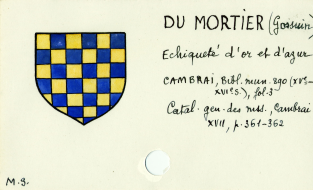 DU MORTIER (Gossuin)
Echiqueté d'or et d'azur
CAMBRAI, Bibl. mun. 890 (XVe-
XVIe s.), fol. 3
Catal. gen. des mss., Cambrai
XVII, p. 361-362
M.G.